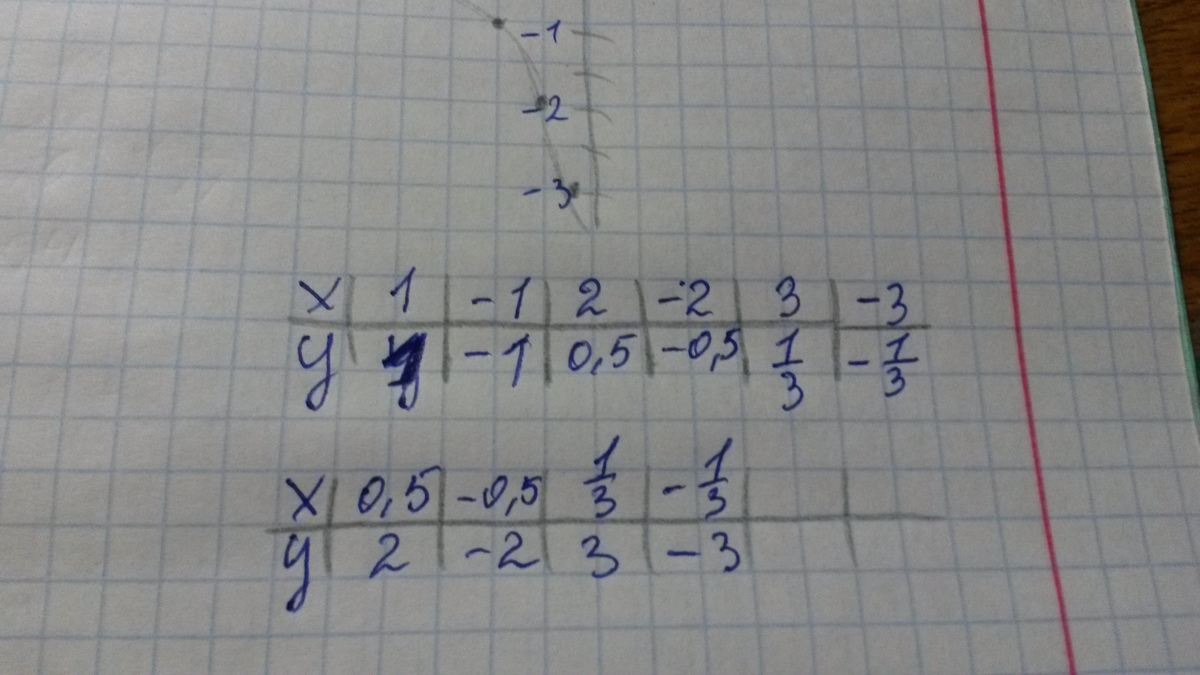 -1
-2
-3
x 1 -1 2 -2 3 -3
y -1 0,5 -0,5 1/3 -1/3
x 0,5 -0,5 1/3 -1/3
y 2 -2 3 -3